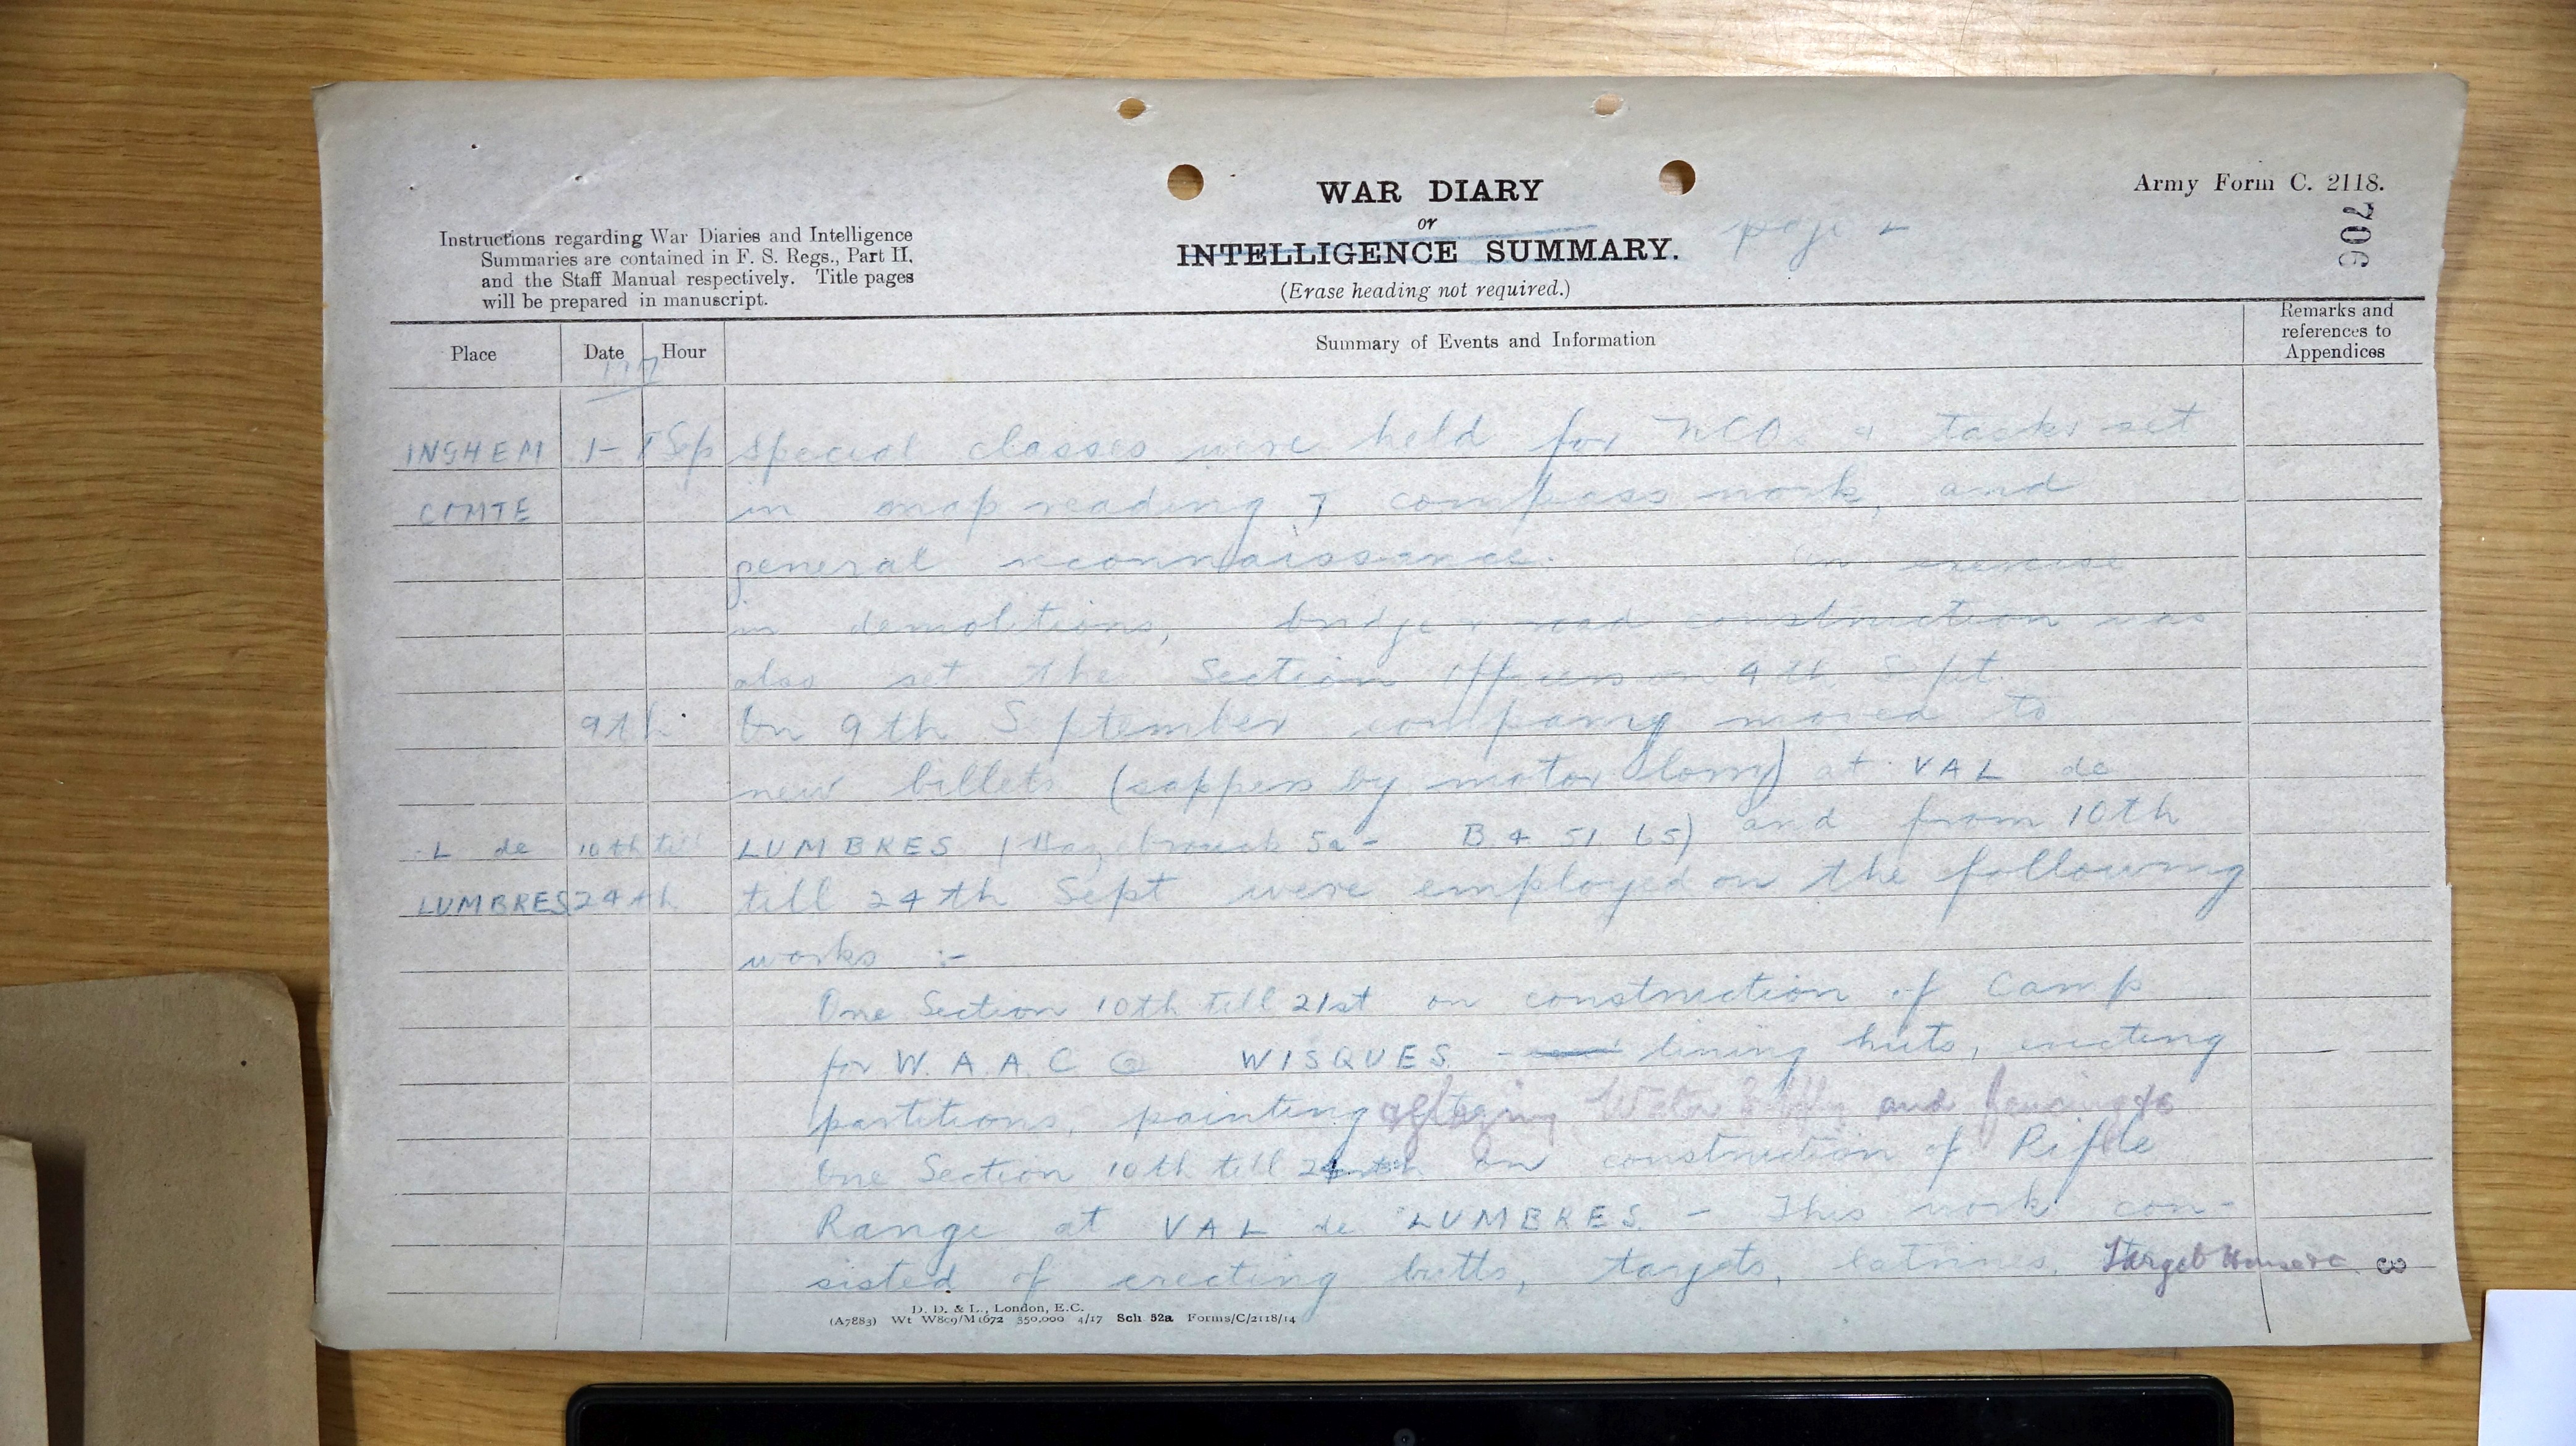 Army Form C. 2118.
706
WAR DIARY
or
INTELLIGENCE SUMMARY.
page 2
(Erase heading not required.)
Instructions regarding War Diaries and Intelligence
Summaries are contained in F. S. Regs., Part II.
and the Staff Manual respectively. Title pages
will be prepared in manuscript.
Place Date Hour Summary of Events and Information Remarks and references to Appendices
INGHEM 1- Sep Special classes were held for NCOs & tasks set
COMTE in map reading & compass work, and
general reconnaissance. An exercise
in demolitions, bridge & road construction was
also set the Section Officers on 4th Sept
9th On 9th September company moved to
new billets (sappers by motor lorry) at VAL de
L de 10th till LUMBRES (Hazebrouck 5a - B 4 51 65) and from 10th
LUMBRES 24th till 24th Sept were employed on the following
works :-
One Section 10th till 21st on construction of Camp
for W. A. A. C @ WISQUES - lining huts, erecting
partitions, painting Water Supply and fencing &c
One Section 10th till 24th on construction of Rifle
Range at VAL de LUMBRES - This work con-
sisted of erecting butts, targets, latrines, Target House &c. 3
D. D. & L., London, E.C.
(A7883) Wt W809/M1672 350,000 4/17 Sch 52a Forms/C/2118/14